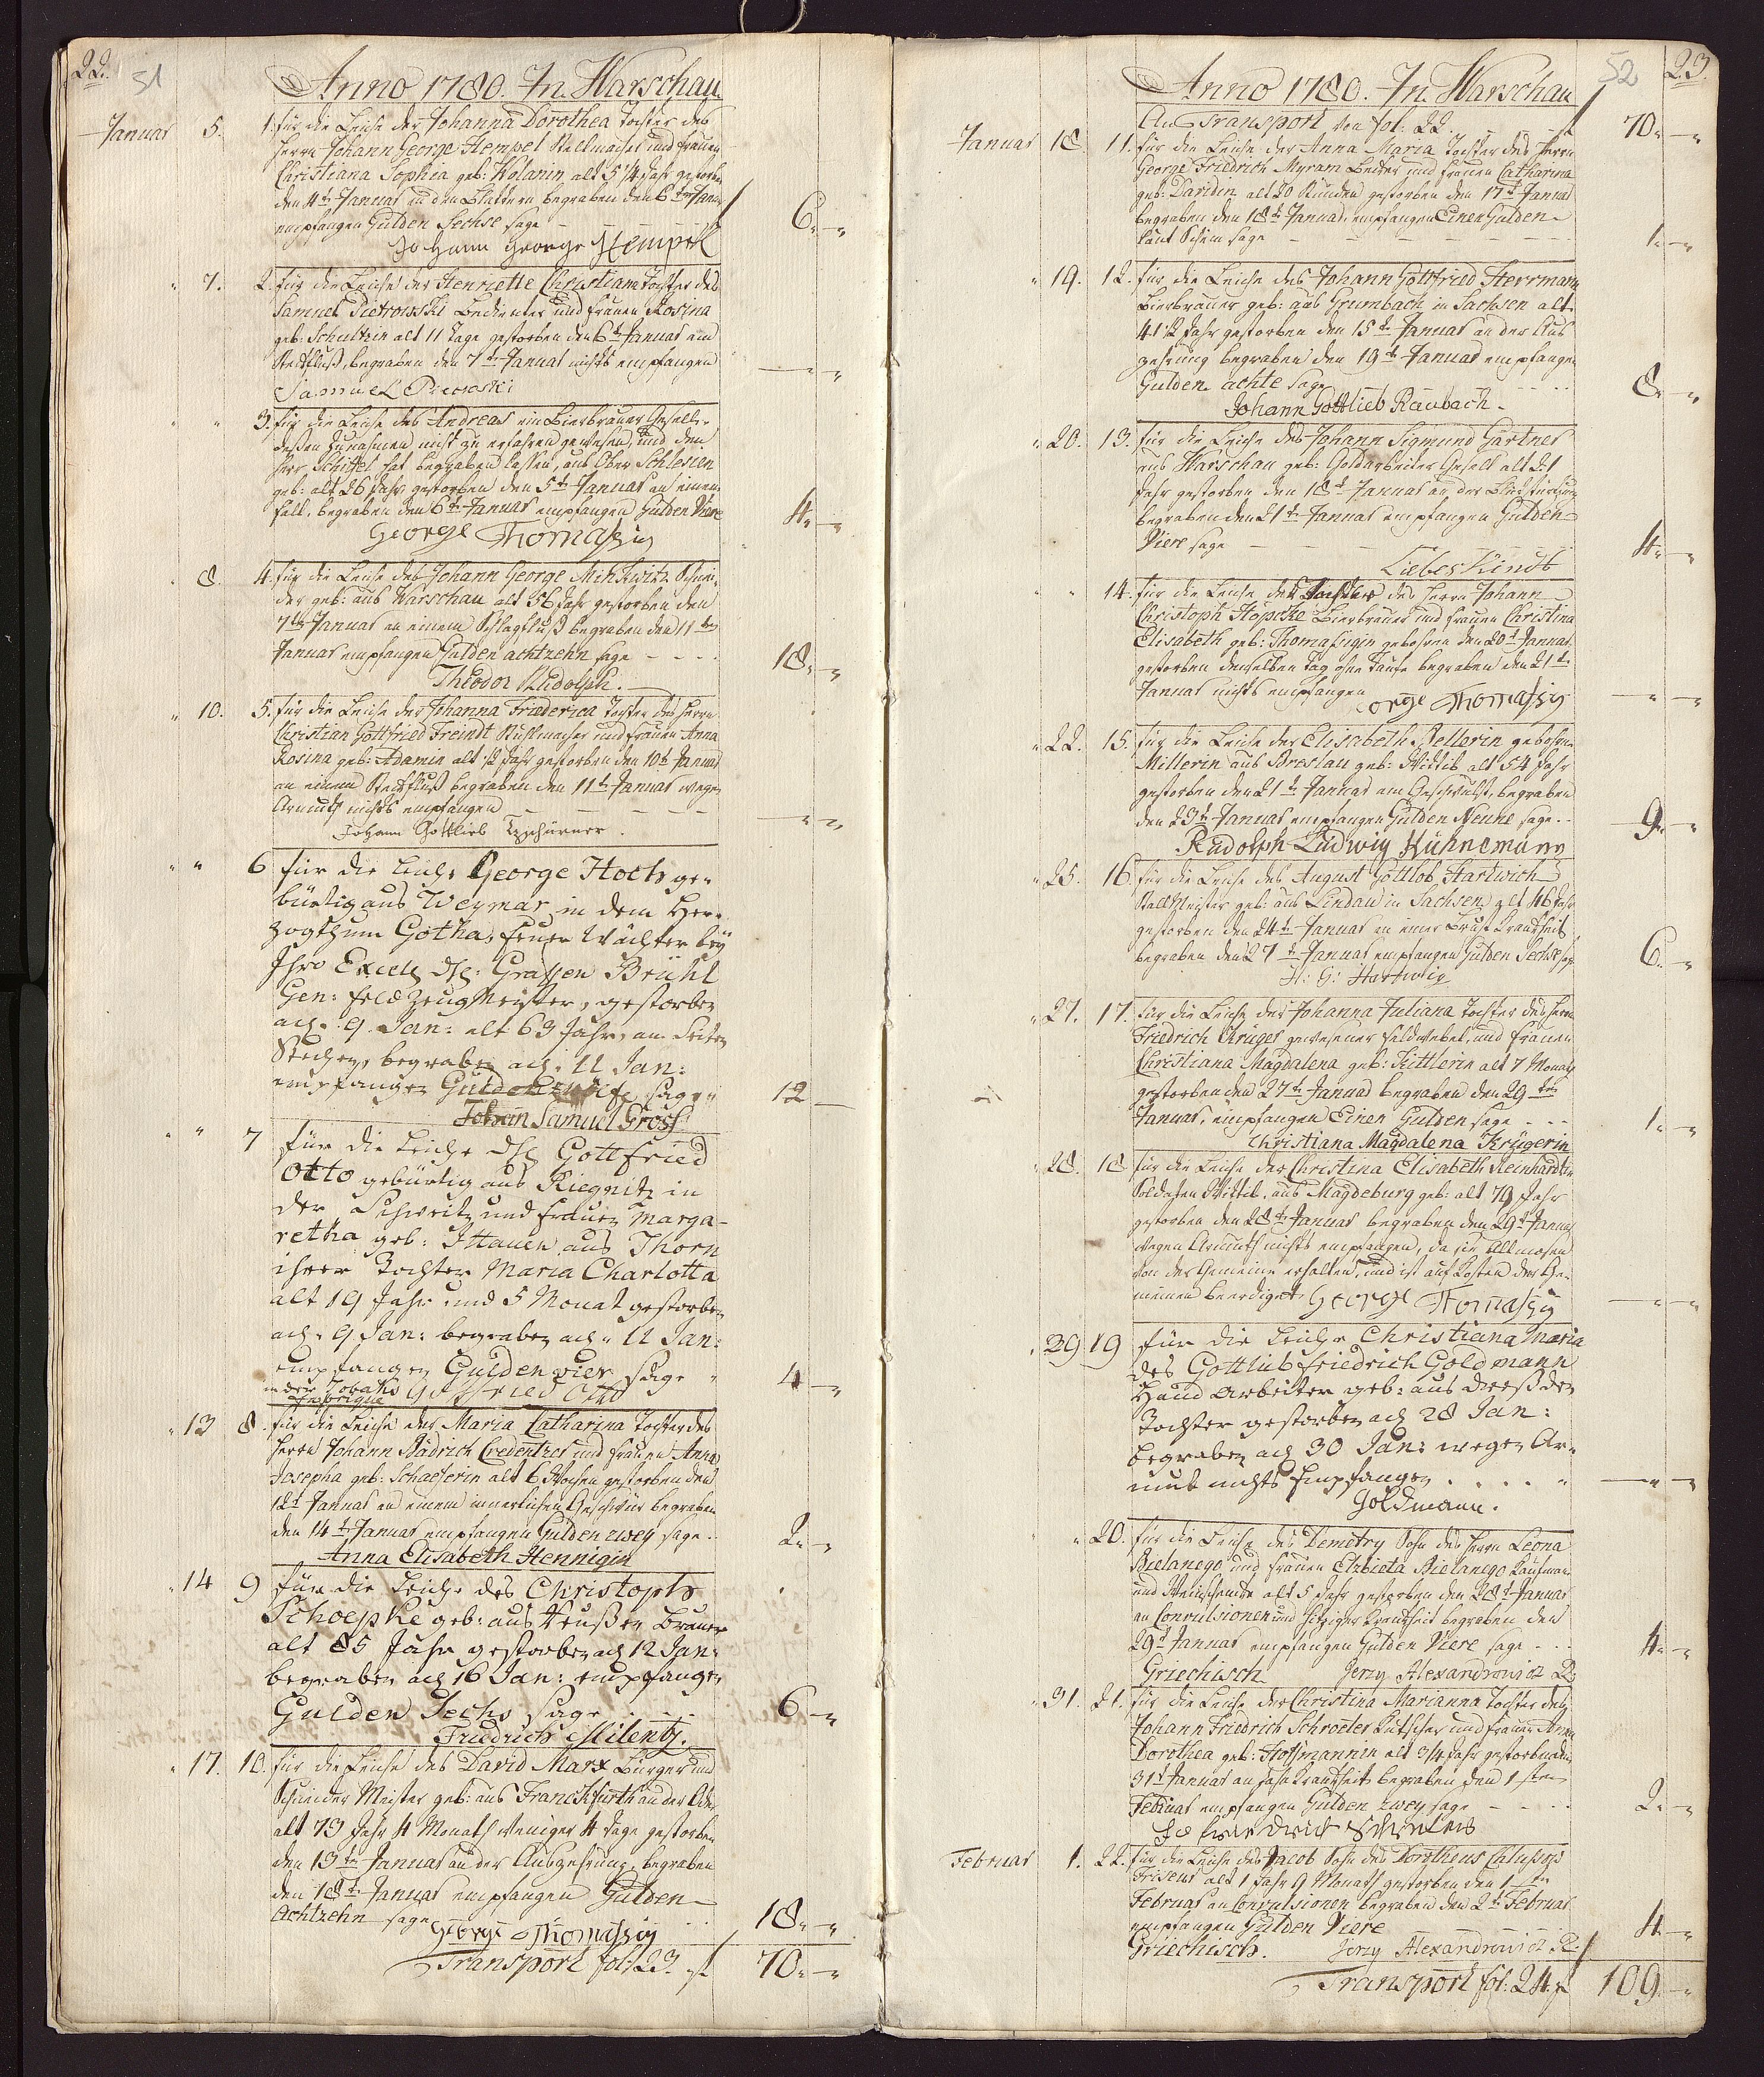 22. 51
Anno 1780. In Warschau
Januar 5. 1. für die Leiche der Johanna Dorothea Tochter des
Herrn Johann George Hempel Stellmacher und Frauen
Christiana Sophia geb: Wolanin alt 5 1/4 Jahr gestorben
den 4t Januar an den Blattern begraben den 6ten Janu
empfangen Gulden Sechse sage – – – 6„–„
Johann George Hempel
„ 7. 2. für die Leiche der Henriette Christiane Tochter des
Samuel Pietrowski Bedienter und Frauen Rosina
geb: Schultzin alt 11 Tage gestorben den 6t Januar am
Steckfluß, begraben den 7t Januar nichts empfangen —„—„
Samuel
„ „ 3. für die Leiche des Andreas ein Bierbrauer Gesell.
deßen Zunahmen nicht zu erfahren gewesen und den
Herr Schittel hat begraben laßen, aus Ober Schlesien
geb: alt 26 Jahr gestorben den 5t Januar an einem
fall, begraben den 6t Januar empfangen Gulden Viere 4„–„
George Thomaßig
„ 8. 4. für die Leiche des Johann George Minkwitz Schnei-
der geb: aus Warschau alt 56 Jahr gestorben den
7ten Januar an einem Schlagfluß begraben den 11ten
Januar empfangen Gulden achtzehn sage – – – 18„–„
Theodor Rudolph.
„ 10. 5. für die Leiche der Johanna Friederica Tochter des Herrn
Christian Gottfried Freindt Stuhlmacher und Frauen Anna
Rosina geb: Adamin alt 1/2 Jahr gestorben den 10t Januar
an einem Steckfluß begraben den 11t Januar wegen
Armuth nichts empfangen – – – —„—„
Johann Gottlieb Tzschürner.
„ „ 6 für die Leiche George Hoch ge-
bürtig aus Weymar in dem Her-
zogthum Gotha, feuer Wächter bey
Ihro Excell: dh: Graffen Brühl
Gen: feld Zeug Meister, gestorben
ad. 9. Jan: alt 63 Jahr, am Seiten
Stechen, begraben ad. 11 Jan:
empfangen Gulden zwölfe sage „ 12 —
Johann Samuel Gross
„ „ 7 für die Leiche dh Gottfried
Otto gebürtig aus Riegnitz in
der Schweitz und Frauen Marga-
retha geb: Ittauen aus Thorn
ihrer Tochter Maria Charlotta
alt 19 Jahr und 5 Monat gestorben
ad. 9 Jan: begraben ad. 11 Jan:
empfangen Gulden vier sage „ 4 –„
in der Tobaks Gottfried Otto
Fabrique
„ 13 8. für die Leiche der Maria Catharina Tochter des
Herrn Johann Rädrich Credentzer und Frauen Anna
Josepha geb: Schaeferin alt 6 Wochen gestorben den
12t Januar an einem innerlichen Geschwür begraben
den 14t Januar empfangen Gulden zwey sage. 2„–„
Anna Elisabeth Hennigin
„ 14 9 für die Leiche des Christoph
Schoepke geb: aus Preußen Brauer
alt 85 Jahr gestorben ad 12 Jan:
begraben ad 16 Jan: empfangen
Gulden Sechs sage . . . 6 –„
Friedrich Milentz.
„ 17. 10. für die Leiche des David Marx Bürger und
Schneider Meister geb: aus Franckfurth an der Oder
alt 73 Jahr 4 Monath weniger 4 Tage gestorben
den 13ten Januar an der Auszehrung, begraben
den 18t Januar empfangen Gulden
Achtzehn sage . . . 18„–„
George Thomaßig
Transport fol: 23. f 70„–„
52 23.
Anno 1780. In Warschau
An Transport von fol: 22. f 70„–„
Januar 18. 11. für die Leiche der Anna Maria Tochter des Herrn
George Friedrich Myram Becker und Frauen Catharina
geb: Daridin alt 20 Stunden gestorben den 17t Januar
begraben den 18t Januar, empfangen Einen Gulden
laut Schein sage – – – 1„–„
„ 19. 12. für die Leiche des Johann Gottfried Herrmann
Bierbrauer geb: aus Grumbach in Sachsen alt
41 1/2 Jahr gestorben den 15t Januar an der Aus
zehrung begraben den 19t Januar empfangen
Gulden achte sage . . . 8„–„
Johann Gottlieb Raubach.
„ 20. 13. für die Leiche des Johann Sigmund Gärtner
aus Warschau geb: Goldarbeiter Gesell alt 21
Jahr gestorben den 18t Januar an der Blutstürtzung
begraben den 21t Januar empfangen Gulden
Viere sage – – – 4„–„
Liebeskindt
„ „ 14. für die Leiche des Tochter des Herrn Johann
Christoph Höpcke Bierbrauer und Frauen Christina
Elisabeth geb: Thomaßigin gebohren den 20t Januar.
gestorben denselben Tag ohne Taufe begraben den 21t
Januar nichts empfangen —„—„
George Thomaßig
„ 22. 15. für die Leiche der Elisabeth Kellerin gebohrne
Millerin aus Breslau geb: Wittib alt 54 Jahr
gestorben den 21t Januar am Geschwulst, begraben
den 23t Januar empfangen Gulden Neune sage.. 9„–„
Rudolph Ludwig Kühnemann
„ 25. 16. für die Leiche des August Gottlob Hartwich
Stallmeister geb: aus Lindau in Sachsen alt 46 Jahr
gestorben den 24t Januar an einer Brust Krankheit,
begraben den 27t Januar empfangen Gulden Sechse sage 6„–„
H: G: Hartwig
„ 27. 17. für die Leiche der Johanna Juliana Tochter des Herrn
Friedrich Krüger gewesener Feldwebel, und Frauen
Christiana Magdalena geb: Kittlerin alt 7 Monath
gestorben den 27t Januar begraben den 29ten
Januar, empfangen Einen Gulden sage – – – 1„–„
Christiana Magdalena Krügerin
„ 28. 18 für die Leiche der Christina Elisabeth Reinhardtin
Soldaten Wittib, aus Magdeburg geb: alt 79 Jahr
gestorben den 28t Januar begraben den 29t Januar
wegen Armuth nichts empfangen, da sie Allmosen
von der Gemeine erhalten, und ist auf Kosten der Ge-
meinen beerdiget. George Thomaßig —„—„
„ 29 19 für die Leiche Christiana Maria
des Gottlieb Friedrich Goldmann
Hand Arbeiter geb: aus Dreßden
Tochter gestorben ad 28 Jan:
begraben ad 30 Jan: wegen Ar-
muth nichts Empfangen . . . . „ —„—„
Goldmann.
„ 20. für die Leiche des Demetry Sohn des Herrn Leona
Bielanego und Frauen Elzbieta Bielanego Kaufmann
und Weinschenk alt 5 Jahr gestorben den 28t Januar
an Convulsionen und hitziger Krankheit begraben den
29t Januar empfangen Gulden Viere sage . . . 4„–„
Griechisch. Jerzy Alexandrowicz R:
„ 31. 21. für die Leiche der Christina Marianna Tochter des
Johann Friedrich Schroeter Kutscher und Frauen Anna
Dorothea geb: Hoffmannin alt 3/4 Jahr gestorben den
31t Januar an Krankheit begraben den 1sten
Februar empfangen Gulden zwey sage – – – 2„–„
Februar 1. 22. für die Leiche des Jacob Sohn des Dorotheus
Friseur alt 1 Jahr 9 Monath gestorben den 1ten
Februar an Convulsionen begraben den 2t Februar
empfangen Gulden Viere 4„–„
Griechisch. Jerzy Alexandrowicz R:
Transport fol: 24. f 109„–„